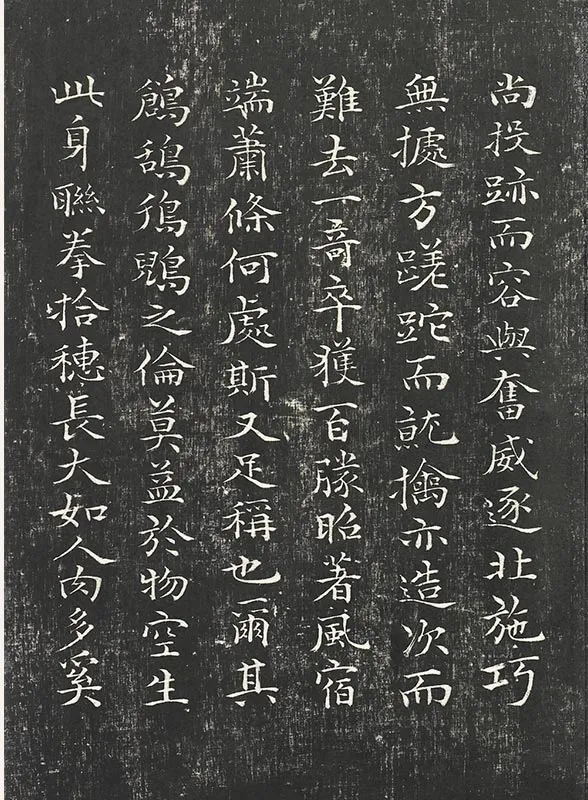 尚投跡而容與奮威逐壯施巧
無據方蹉跎而就擒亦造次而
難去一奇卒獲百勝昭著風宿
端蕭條何處斯又足稱也爾其
鶬鴰鵅鶂之倫莫益於物空生
此身聯拳拾穗長大如人肉多奚